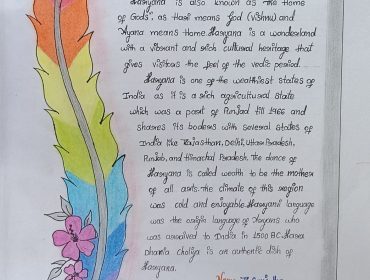 Haryana is also known as the Home
of Gods", as Hari means God (Vishnu) and
Ayana means home Haryana is a wonderland
with a vibrant and rich cultural heritage that
gives visitors the feel of the vedic period.
Haryana is one of the wealthiest states of
India as it is a rich agricultural state
which was a part of Punjab till 1966 and
shares its borders with several states of
India like Rajasthan, Delhi, Uttar Pradesh,
Punjab, and Himachal Pradesh. the dance of
Haryana is called wealth to be the mother
of all arts. the climate of this region
was cold and enjoyable. Haryanvi language
was the origin language of Aryans who
was arrived to India in 1500 BC. Hara
Dhania Choliya is an authentic dish of
Haryana.